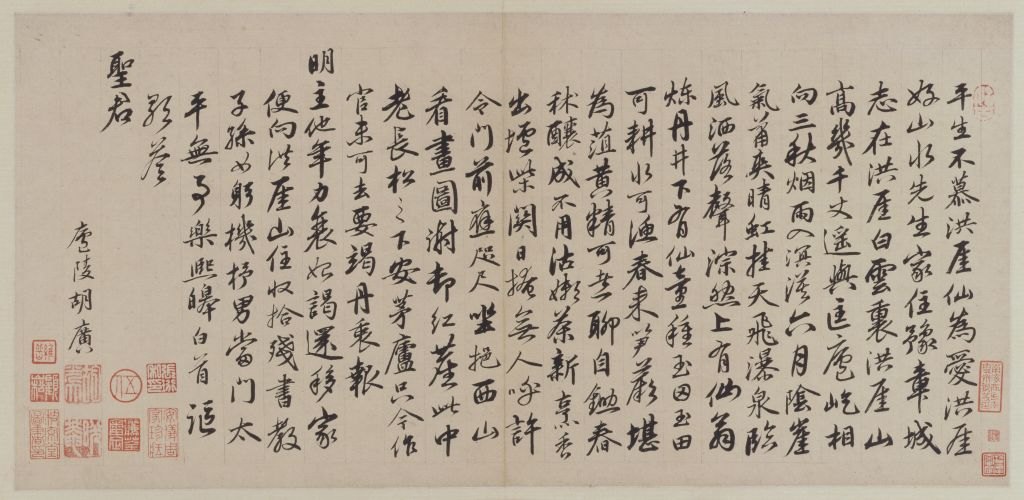 平生不慕洪厓仙為愛洪厓
好山水先生家住豫章城
志在洪厓白雲裏洪厓山
高幾千丈遥與匡廬屹相
向三秋烟雨入溟濛六月陰崖
氣蕭爽晴虹挂天飛瀑泉臨
風洒落聲淙然上有仙翁
煉丹井下有仙童種玉田玉田
可耕水可漁春來笋蕨堪
為菹黄精可煮聊自鋤春
秫釀成不用沽嫩茶新烹香
出壚柴関日掩無人呼許
令門前應咫尺坐挹西山
看畫圖謝却紅塵此中
老長松之下安茅廬只今作
官未可去要竭丹衷報
明主他年力衰始謁還移家
便向洪厓山住收拾殘書教
子孫女躬機杼男當門太
平無事樂熙皞白首謳
歌答
聖君
廬陵胡廣